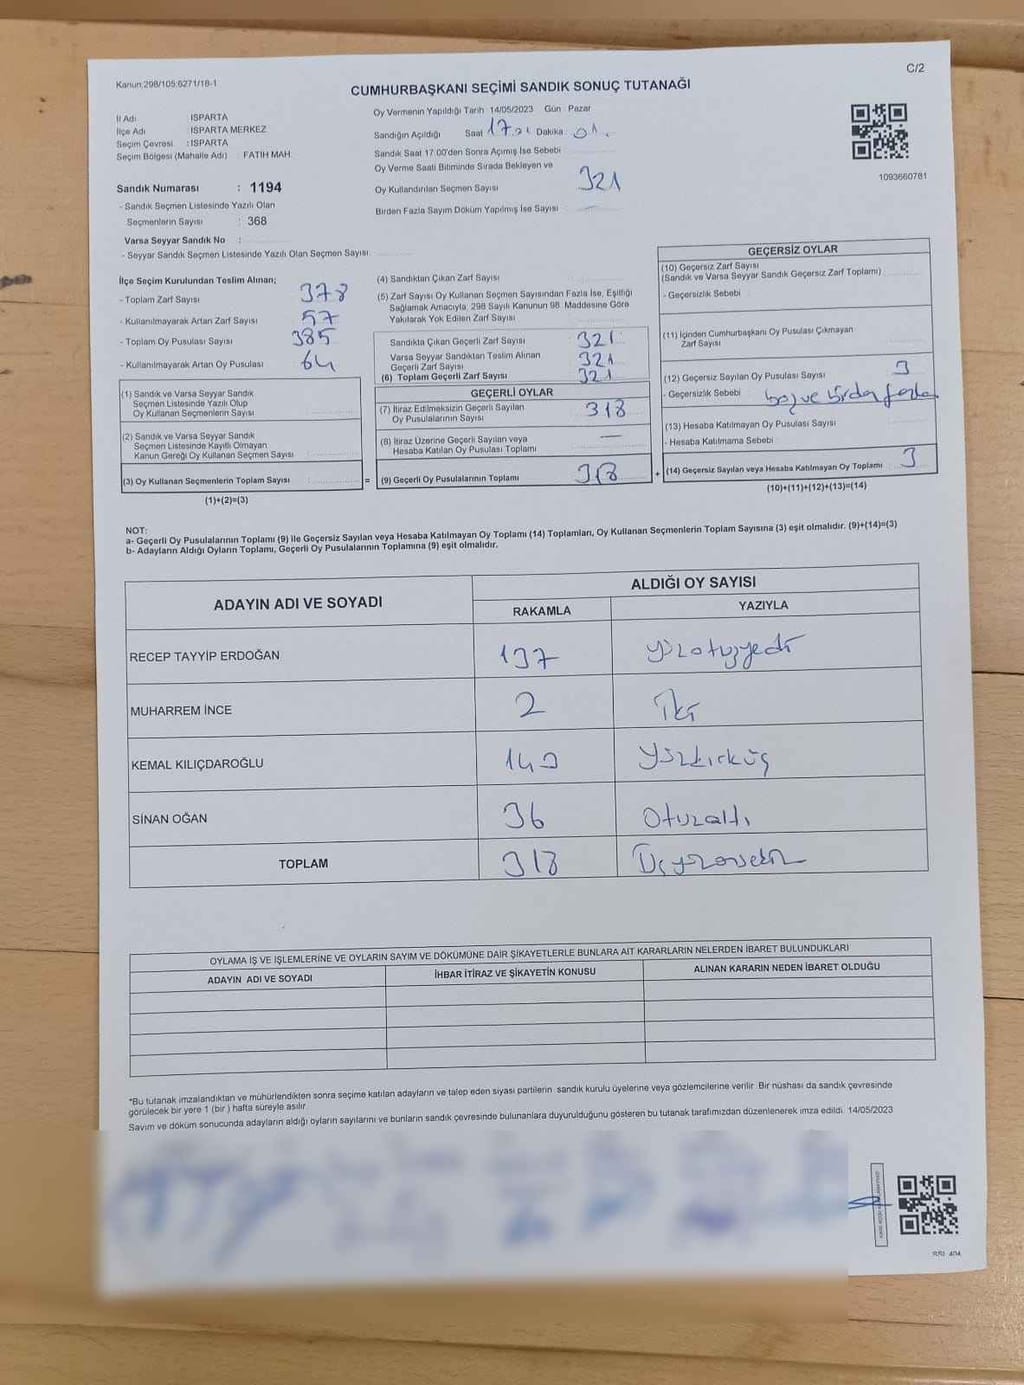 C/2
Kanun:298/105:6271/18-1
CUMHURBAŞKANI SEÇİMİ SANDIK SONUÇ TUTANAĞI
İl Adı ISPARTA
İlçe Adı ISPARTA MERKEZ
Seçim Çevresi : ISPARTA
Seçim Bölgesi (Mahalle Adı) : FATİH MAH.
Sandık Numarası : 1194
- Sandık Seçmen Listesinde Yazılı Olan
Seçmenlerin Sayısı : 368
Varsa Seyyar Sandık No :
- Seyyar Sandık Seçmen Listesinde Yazılı Olan Seçmen Sayısı:
Oy Vermenin Yapıldığı Tarih 14/05/2023 Gün Pazar
Sandığın Açıldığı Saat 17.01 Dakika 01.
Sandık Saat 17:00'den Sonra Açımış İse Sebebi
Oy Verme Saati Bitiminde Sırada Bekleyen ve
Oy Kullandırılan Seçmen Sayısı 321
Birden Fazla Sayım Döküm Yapılmış İse Sayısı —
1093660781
İlçe Seçim Kurulundan Teslim Alınan;
- Toplam Zarf Sayısı 378
- Kullanılmayarak Artan Zarf Sayısı 57
- Toplam Oy Pusulası Sayısı 385
- Kullanılmayarak Artan Oy Pusulası 64
(1) Sandık ve Varsa Seyyar Sandık
Seçmen Listesinde Yazılı Olup
Oy Kullanan Seçmenlerin Sayısı
(2) Sandık ve Varsa Seyyar Sandık
Seçmen Listesinde Kayıtlı Olmayan
Kanun Gereği Oy Kullanan Seçmen Sayısı
(3) Oy Kullanan Seçmenlerin Toplam Sayısı =
(1)+(2)=(3)
(4) Sandıktan Çıkan Zarf Sayısı
(5) Zarf Sayısı Oy Kullanan Seçmen Sayısından Fazla İse, Eşitliği
Sağlamak Amacıyla, 298 Sayılı Kanunun 98. Maddesine Göre
Yakılarak Yok Edilen Zarf Sayısı
Sandıkta Çıkan Geçerli Zarf Sayısı 321
Varsa Seyyar Sandıktan Teslim Alınan
Geçerli Zarf Sayısı 321
(6) Toplam Geçerli Zarf Sayısı 321
GEÇERLİ OYLAR
(7) İtiraz Edilmeksizin Geçerli Sayılan
Oy Pusulalarının Sayısı 318
(8) İtiraz Üzerine Geçerli Sayılan veya
Hesaba Katılan Oy Pusulası Toplamı —
(9) Geçerli Oy Pusulalarının Toplamı 318 +
GEÇERSİZ OYLAR
(10) Geçersiz Zarf Sayısı
(Sandık ve Varsa Seyyar Sandık Geçersiz Zarf Toplamı)
- Geçersizlik Sebebi
(11) İçinden Cumhurbaşkanı Oy Pusulası Çıkmayan
Zarf Sayısı
(12) Geçersiz Sayılan Oy Pusulası Sayısı 3
- Geçersizlik Sebebi boş ve birden fazla
(13) Hesaba Katılmayan Oy Pusulası Sayısı
- Hesaba Katılmama Sebebi
(14) Geçersiz Sayılan veya Hesaba Katılmayan Oy Toplamı 3
(10)+(11)+(12)+(13)=(14)
NOT:
a- Geçerli Oy Pusulalarının Toplamı (9) ile Geçersiz Sayılan veya Hesaba Katılmayan Oy Toplamı (14) Toplamları, Oy Kullanan Seçmenlerin Toplam Sayısına (3) eşit olmalıdır. (9)+(14)=(3)
b- Adayların Aldığı Oyların Toplamı, Geçerli Oy Pusulalarının Toplamına (9) eşit olmalıdır.
ADAYIN ADI VE SOYADI ALDIĞI OY SAYISI
RAKAMLA YAZIYLA
RECEP TAYYİP ERDOĞAN 137 yüzotuzyedi
MUHARREM İNCE 2 iki
KEMAL KILIÇDAROĞLU 143 yüzkırküç
SİNAN OĞAN 36 Otuzaltı
TOPLAM 318 Üçyüzonsekiz
OYLAMA İŞ VE İŞLEMLERİNE VE OYLARIN SAYIM VE DÖKÜMÜNE DAİR ŞİKAYETLERLE BUNLARA AİT KARARLARIN NELERDEN İBARET BULUNDUKLARI
ADAYIN ADI VE SOYADI İHBAR İTİRAZ VE ŞİKAYETİN KONUSU ALINAN KARARIN NEDEN İBARET OLDUĞU
*Bu tutanak imzalandıktan ve mühürlendikten sonra seçime katılan adayların ve talep eden siyasi partilerin sandık kurulu üyelerine veya gözlemcilerine verilir. Bir nüshası da sandık çevresinde
görülecek bir yere 1 (bir ) hafta süreyle asılır.
Sayım ve döküm sonucunda adayların aldığı oyların sayılarını ve bunların sandık çevresinde bulunanlara duyurulduğunu gösteren bu tutanak tarafımızdan düzenlenerek imza edildi. 14/05/2023